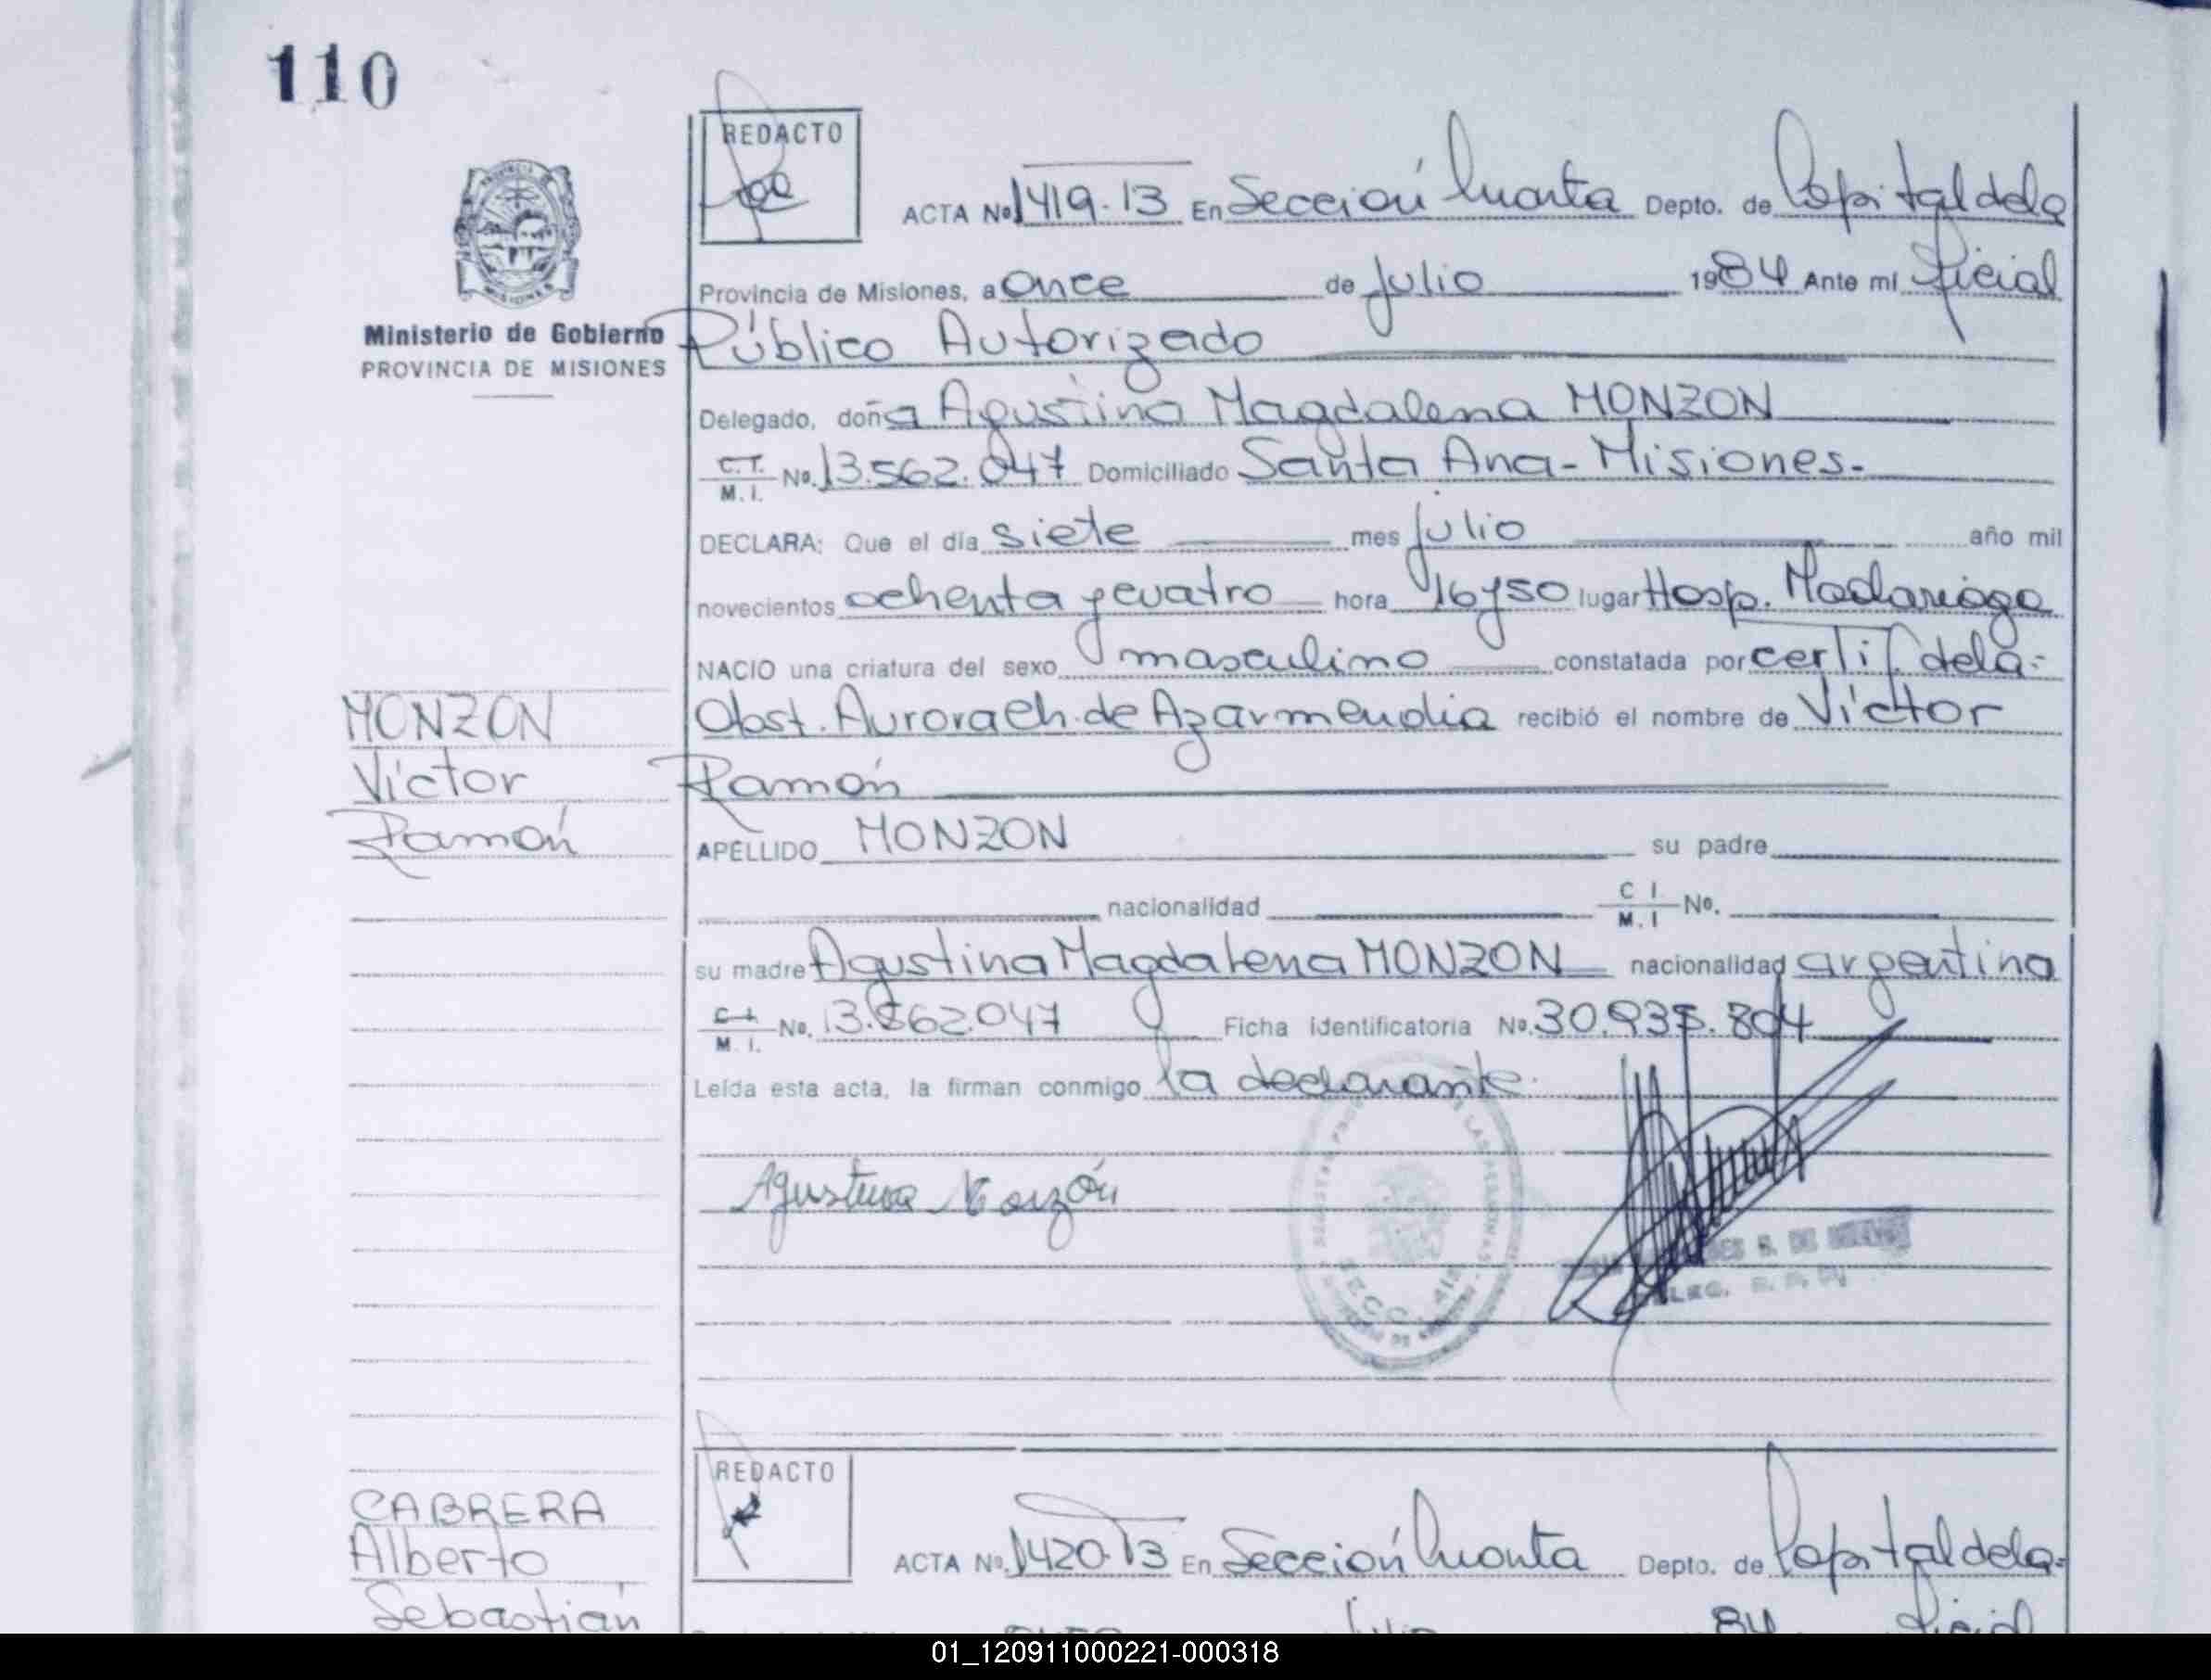 110
REDACTO
ACTA Nº 1419-13 En Sección Cuarta Depto. de Capital de la
Provincia de Misiones, a once de Julio 1984 Ante mi Oficial
Ministerio de Gobierno
Público Autorizado
PROVINCIA DE MISIONES
Delegado, doña Agustina Magdalena MONZON
C.I. M.I. Nº. 13.562.047 Domiciliado Santa Ana - Misiones.-
DECLARA: Que el día siete mes julio año mil
novecientos ochenta y cuatro hora 16 y 50 lugar Hosp. Madariaga
NACIO una criatura del sexo masculino constatada por certif. de la-
MONZON
Obst. Aurora Ch. de Azarmendia recibió el nombre de Víctor
Víctor
Ramón
Ramón
APELLIDO MONZON su padre
nacionalidad C I M. I Nº.
su madre Agustina Magdalena MONZON nacionalidad argentina
C.I. M. I. Nº. 13.562.047 Ficha identificatoria Nº. 30.935.804
Leída esta acta, la firman conmigo la declarante.
Agustina Monzón
SECC. 4ta
CABRERA
Alberto
Sebastián
REDACTO
ACTA Nº. 1420-13 En Sección Cuarta Depto. de Capital de la-
84
01_120911000221-000318